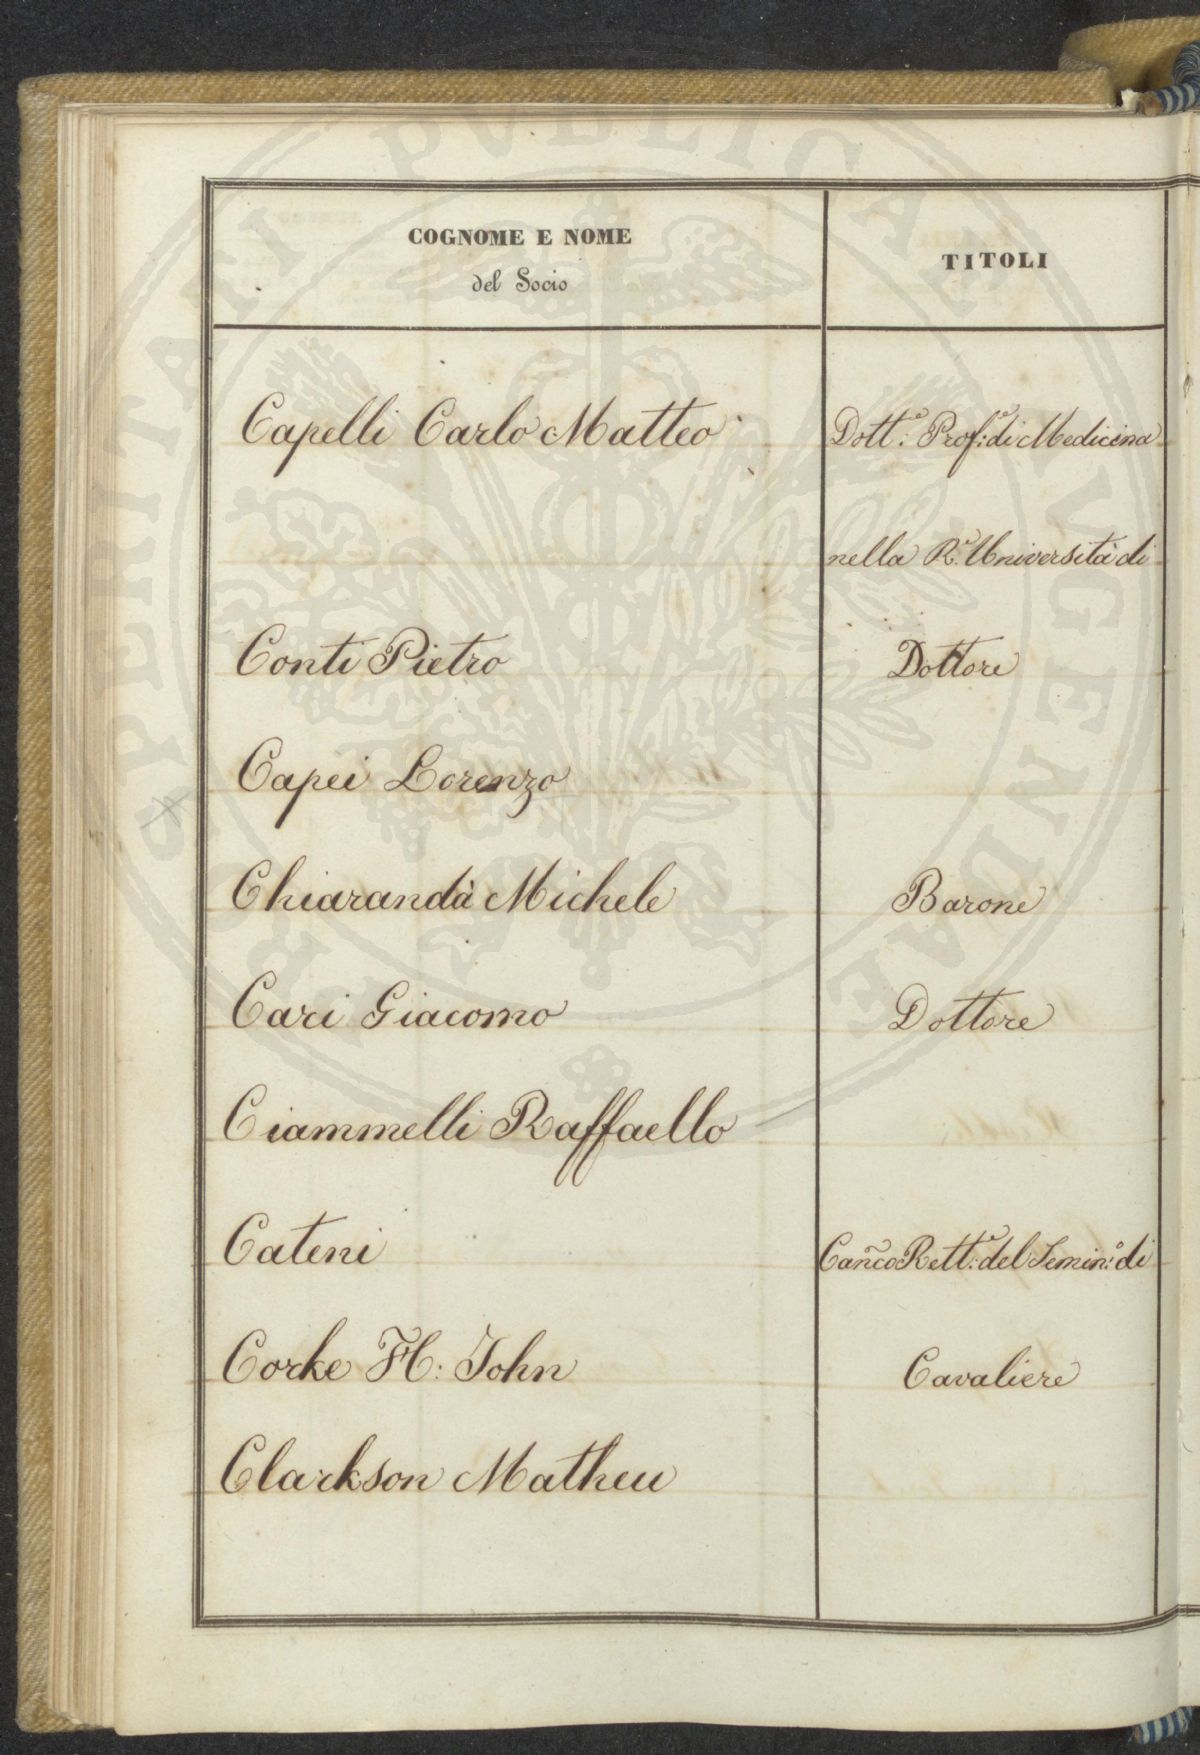 COGNOME E NOME
del Socio
TITOLI
Capelli Carlo Matteo
Dott.e: Prof.e: di Medicina
nella R.e Università di
Conti Pietro
Dottore
Capei Lorenzo
Chiarandà Michele
Barone
Cari Giacomo
Dottore
Ciammelli Raffaello
Cateni
Cañco Rett.e: del Semin.o: di
Corke H: John
Cavaliere
Clarkson Matheu
PROSPERITATI PUBLICAE AUGENDAE